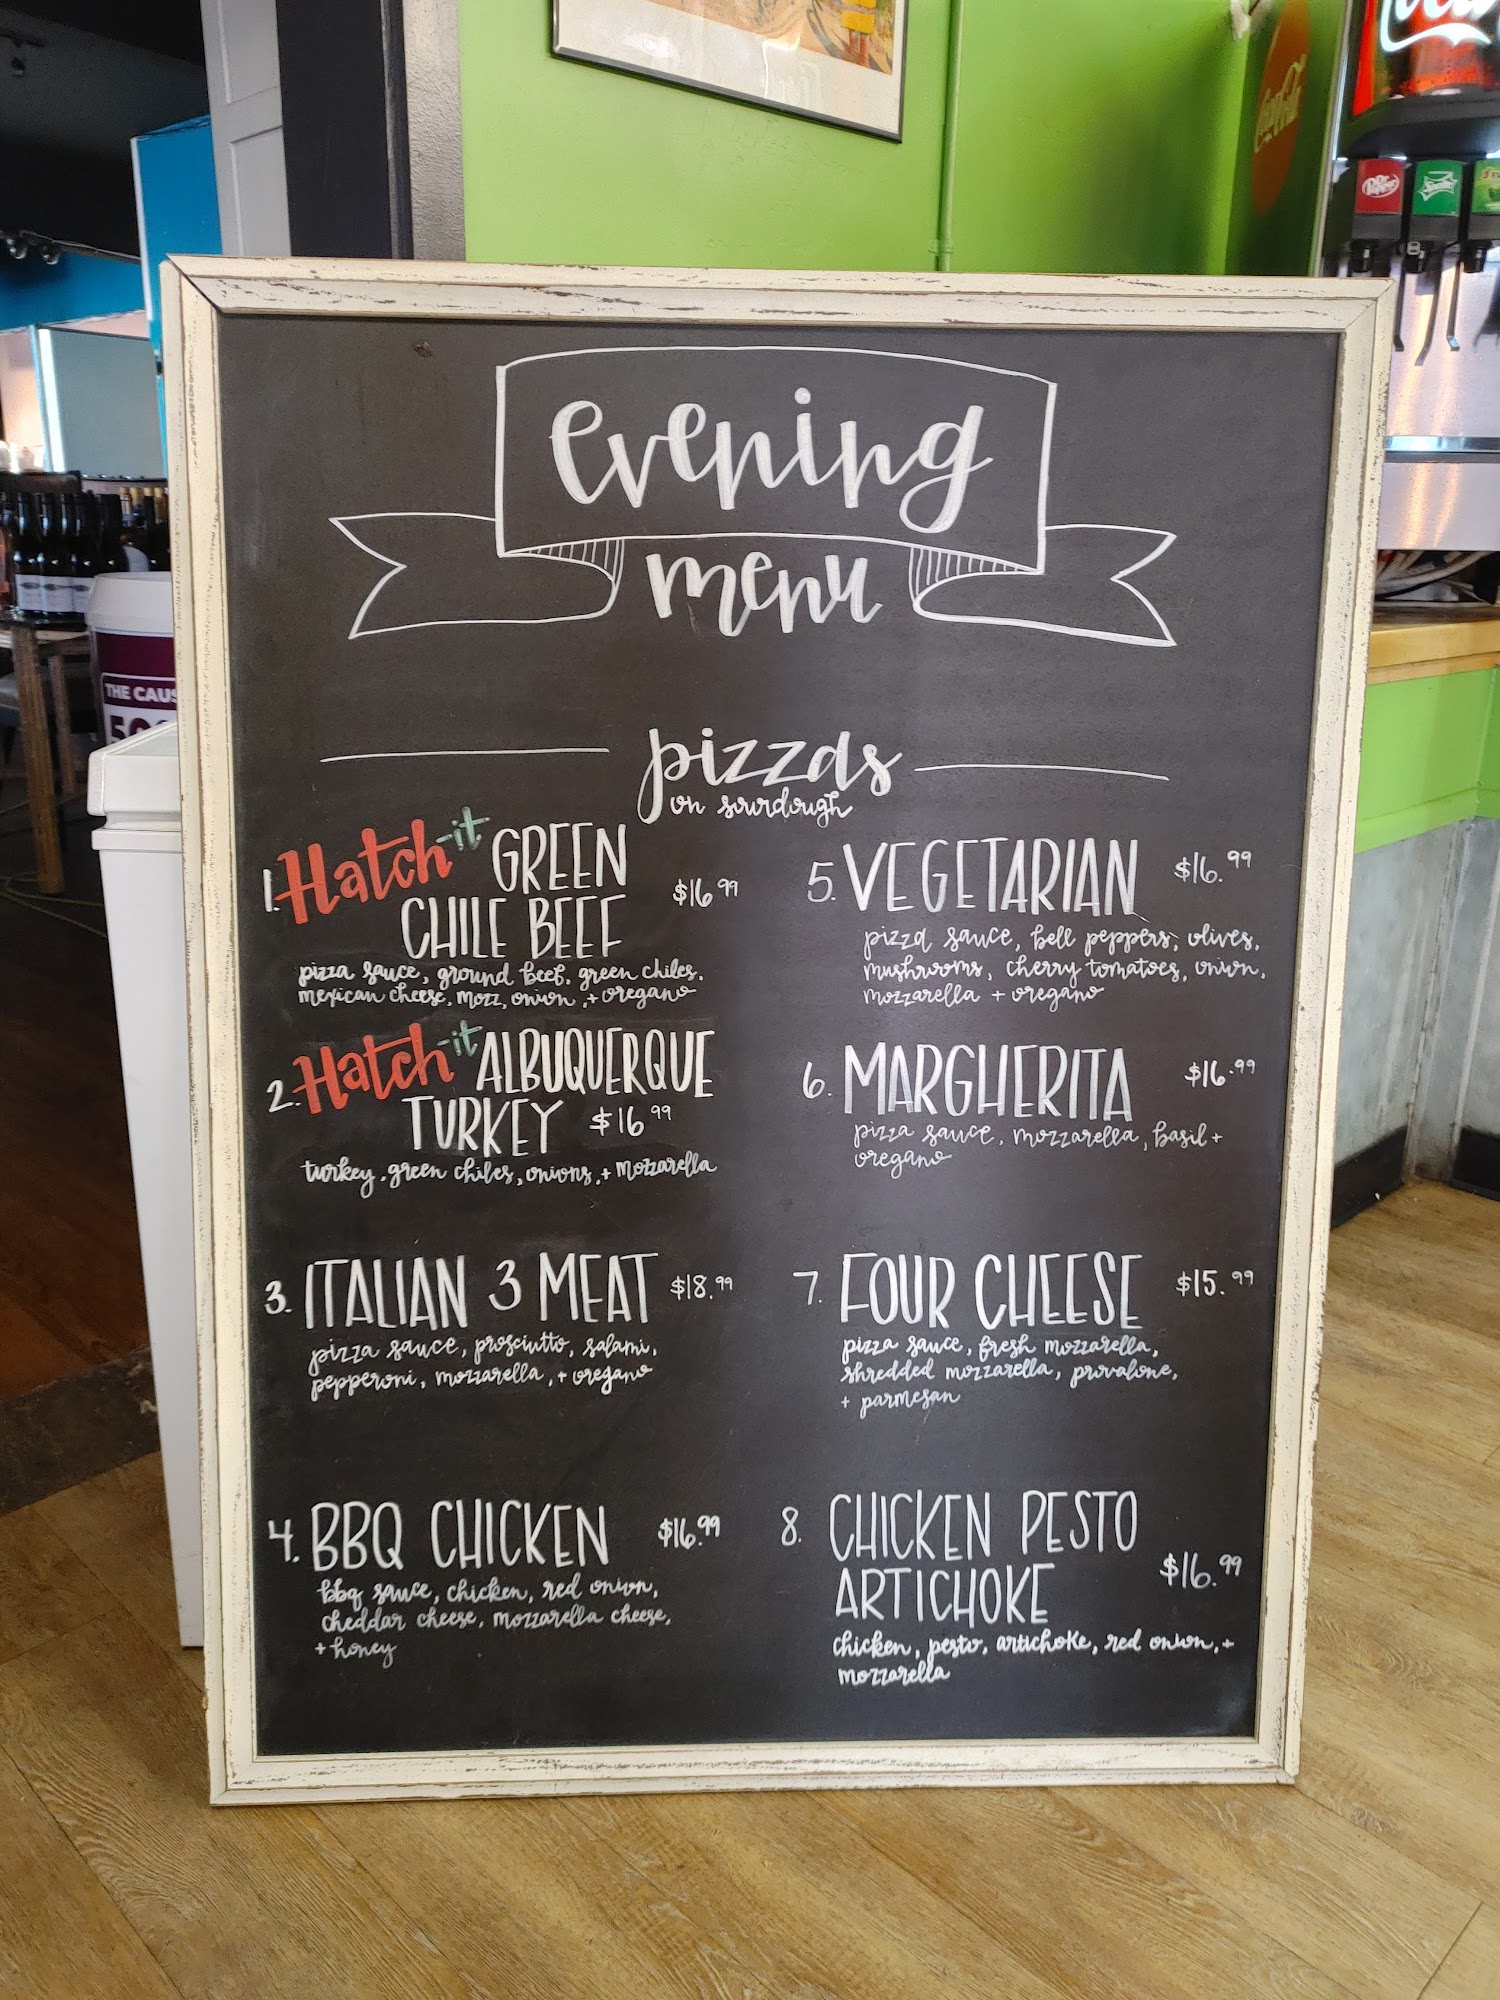 evening
menu
pizzas
on sourdough
1. Hatch-it GREEN
CHILE BEEF $16.99
pizza sauce, ground beef, green chiles,
mexican cheese, mozz, onion, + oregano
2. Hatch-it ALBUQUERQUE
TURKEY $16 99
turkey, green chiles, onions, + mozzarella
3. ITALIAN 3 MEAT $18.99
pizza sauce, prosciutto, salami,
pepperoni, mozzarella, + oregano
4. BBQ CHICKEN $16.99
bbq sauce, chicken, red onion,
cheddar cheese, mozzarella cheese,
+ honey
5. VEGETARIAN $16.99
pizza sauce, bell peppers, olives,
mushrooms, cherry tomatoes, onion,
mozzarella + oregano
6. MARGHERITA $16.99
pizza sauce, mozzarella, basil +
oregano
7. FOUR CHEESE $15.99
pizza sauce, fresh mozzarella,
shredded mozzarella, provalone,
+ parmesan
8. CHICKEN PESTO
ARTICHOKE $16.99
chicken, pesto, artichoke, red onion, +
mozzarella
THE CAUS
Coca-Cola
Dr Pepper
Sprite